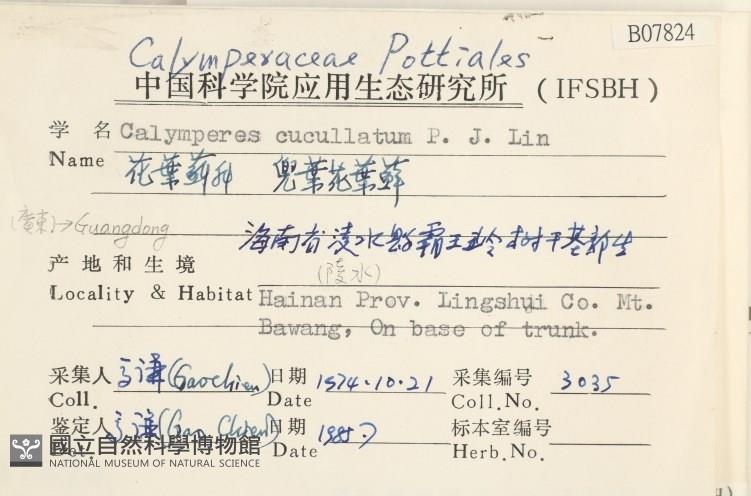 B07824
Calymperaceae Pottiales
中国科学院应用生态研究所 (IFSBH)
学 名 Calymperes cucullatum P. J. Lin
Name 花葉蘚科 兜葉花葉蘚
(廣東)→Guangdong
海南省凌水縣霸王岭树干基部生
产地和生境 (陵水)
Locality & Habitat Hainan Prov. Lingshui Co. Mt.
Bawang, On base of trunk.
采集人 高谦(Gaochien) 日期 1974.10.21 采集编号 3035
Coll. Date Coll.No.
鉴定人 高谦(Gao Chien) 日期 1985.7 标本室编号
Det. Date Herb.No.
國立自然科學博物館
NATIONAL MUSEUM OF NATURAL SCIENCE